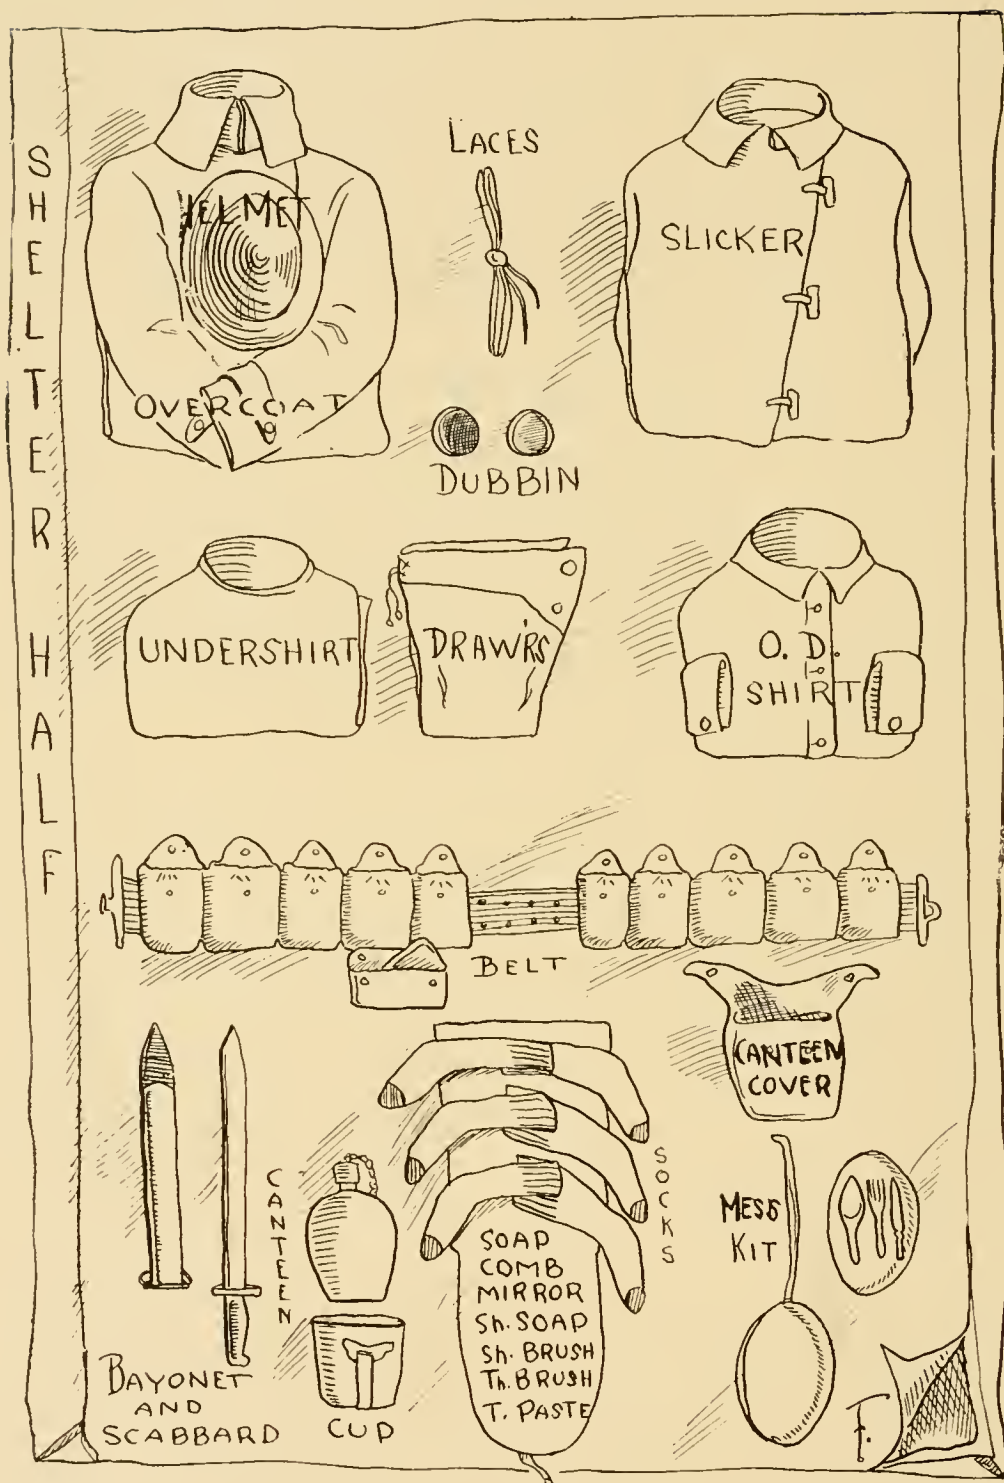 SHELTER HALF
HELMET
OVERCOAT
LACES
DUBBIN
SLICKER
UNDERSHIRT
DRAW'RS
O. D.
SHIRT
BELT
CANTEEN
COVER
BAYONET
AND
SCABBARD
CANTEEN
CUP
SOCKS
SOAP
COMB
MIRROR
Sh. SOAP
Sh. BRUSH
Th. BRUSH
T. PASTE
MESS
KIT
F.